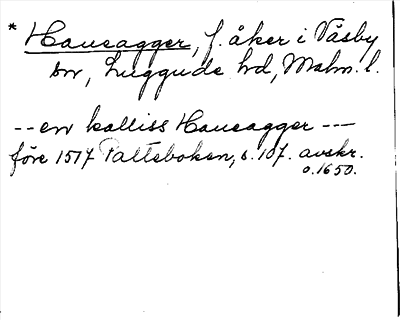 * Haueagger, f. åker i Väsby
sn, Luggude hd, Malm. l.
-- en kalliss Haueagger ---
före 1517 Palteboken, s. 107. avskr.
o. 1650.